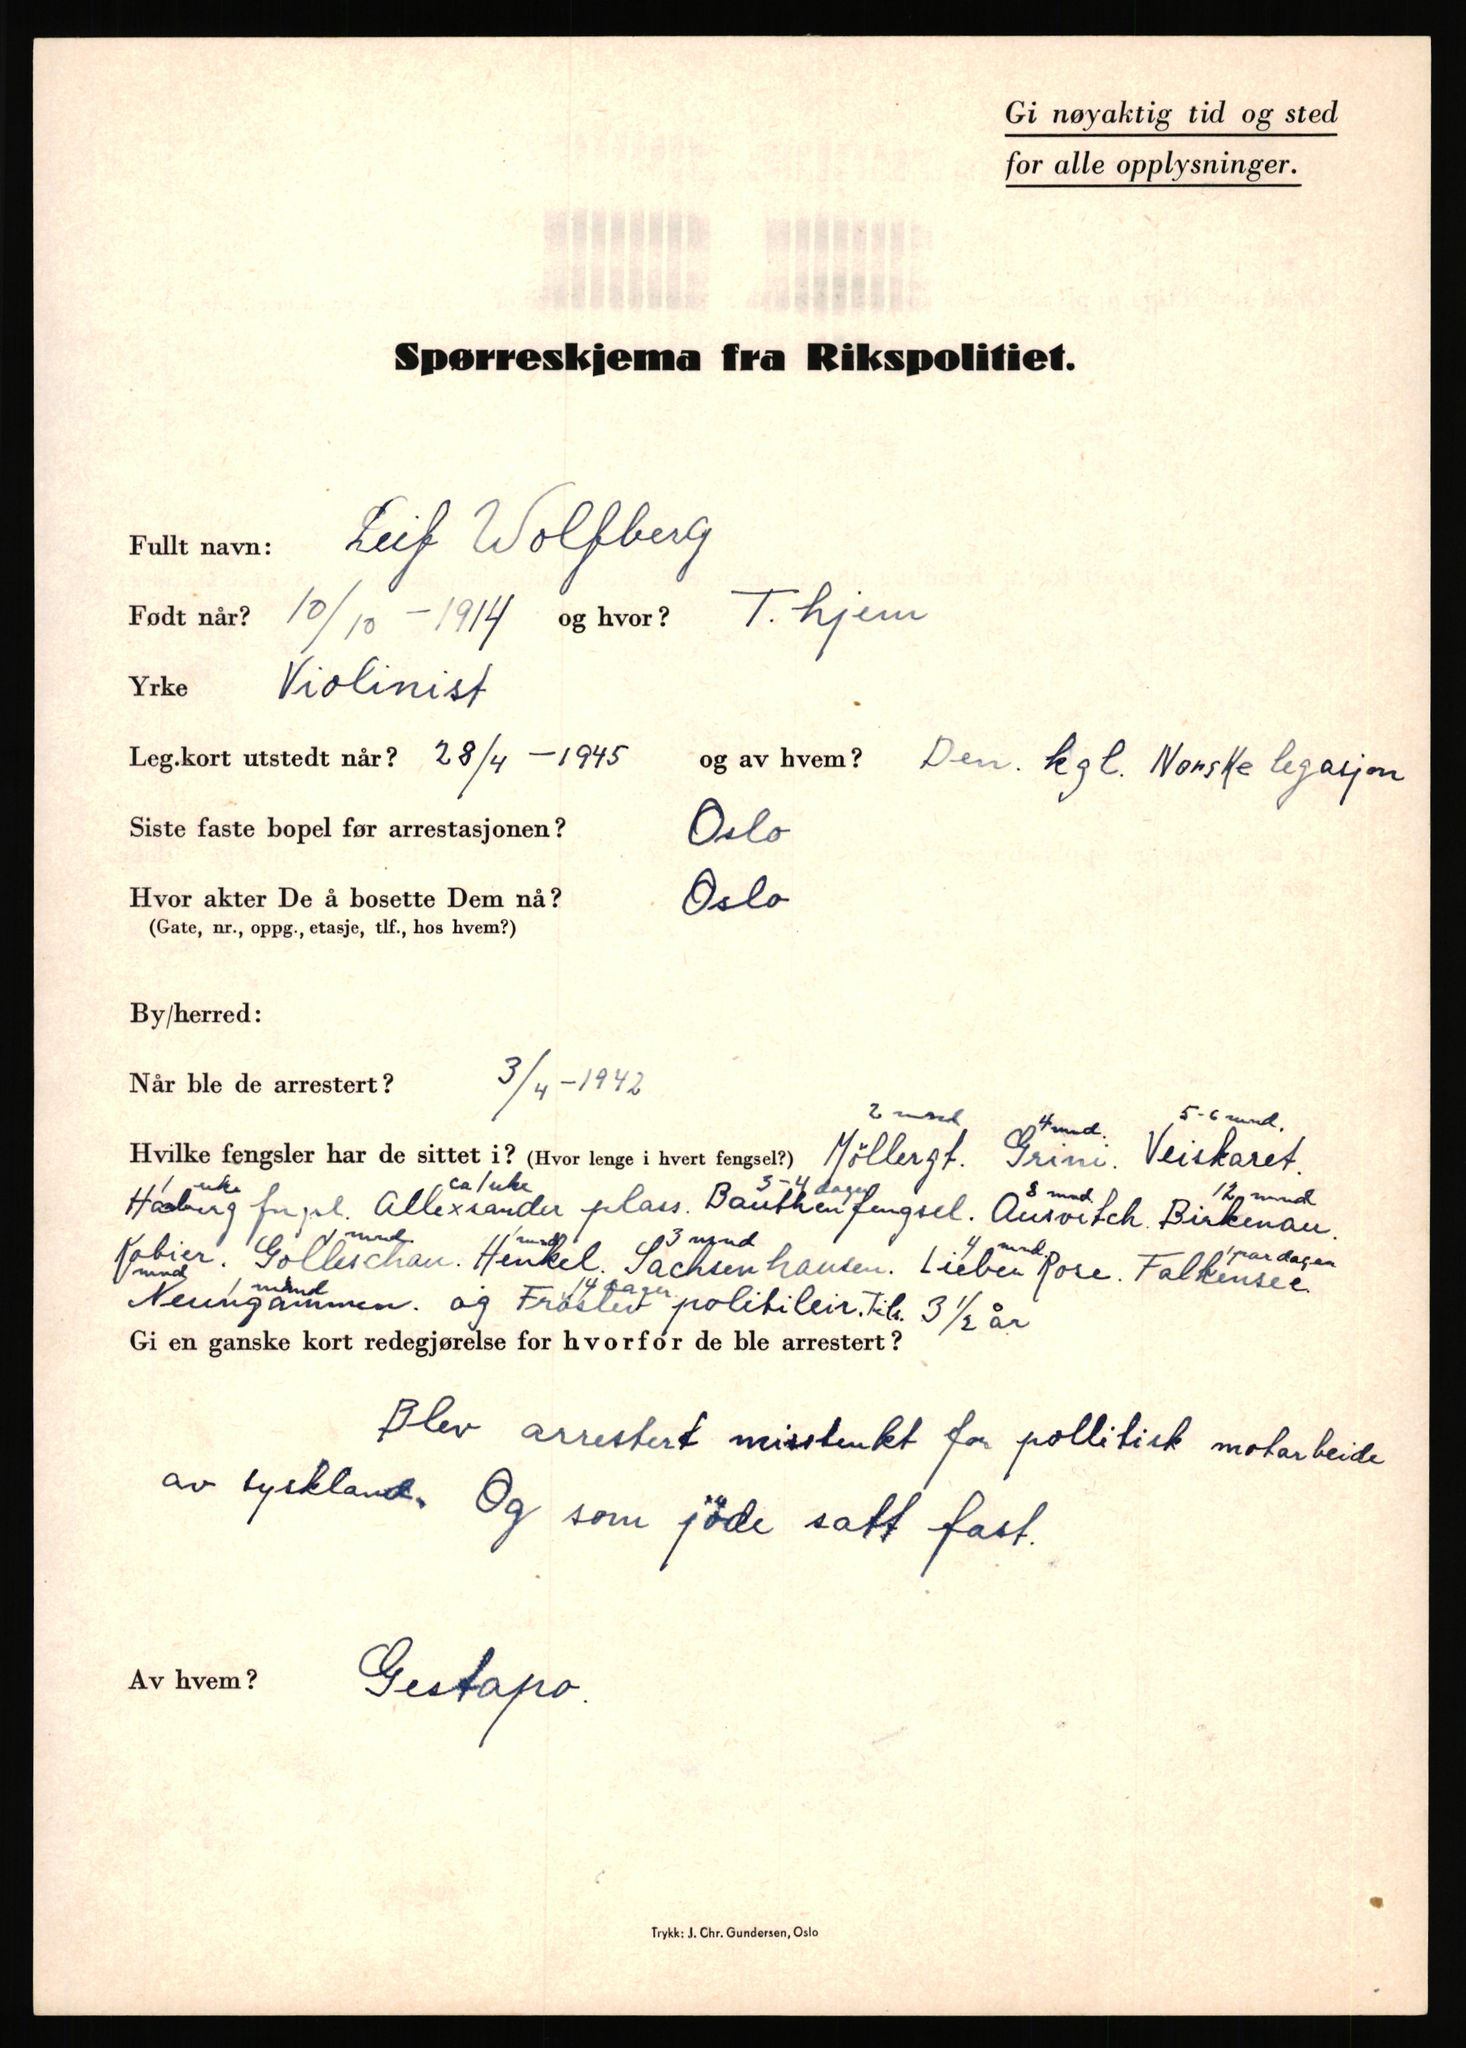 Gi nøyaktig tid og sted
for alle opplysninger.
Spørreskjema fra Rikspolitiet.
Fullt navn: Leif Wolfberg
Født når? 10/10 - 1914 og hvor? T. hjem
Yrke Violinist
Leg.kort utstedt når? 28/4 - 1945 og av hvem? Den. kgl. Norske legasjon
Siste faste bopel før arrestasjonen? Oslo
Hvor akter De å bosette Dem nå? Oslo
(Gate, nr., oppg., etasje, tlf., hos hvem?)
By/herred:
Når ble de arrestert? 3/4 - 1942
2 mnd 4 mnd. 5-6 mnd.
Hvilke fengsler har de sittet i? (Hvor lenge i hvert fengsel?) Möllergt. Grini. Veiskaret.
1 uke ca 1 uke 3-4 dager 8 mnd 12 mnd
Allexsander plass. Bauthen fengsel. Ausvitch. Birkenau.
1 mnd 1 mnd 3 mnd 4 mnd. 1 par dager
Kobier. Golleschau. Henkel. Sachsenhausen. Lieben Rose. Falkensee.
mnd 1 månd 14 dager
Neungammen. og Fröslev politileir. Tils. 3 1/2 år
Gi en ganske kort redegjørelse for hvorfor de ble arrestert?
Blev arrestert misstenkt for pollitisk motarbeide
av tyskland. Og som jöde satt fast.
Av hvem? Gestapo.
Trykk: J. Chr. Gundersen, Oslo